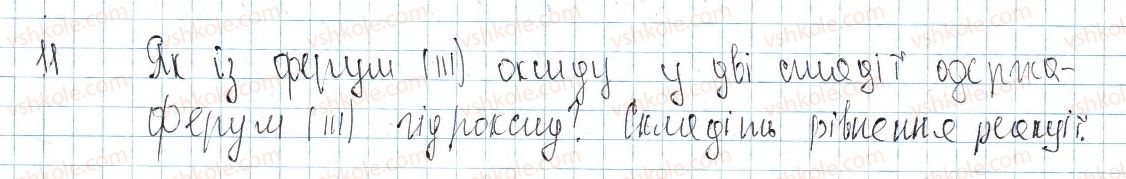 11 Як із ферум (III) оксиду у дві стадії одержа-
ферум (III) гідроксид? Складіть рівняння реакції.